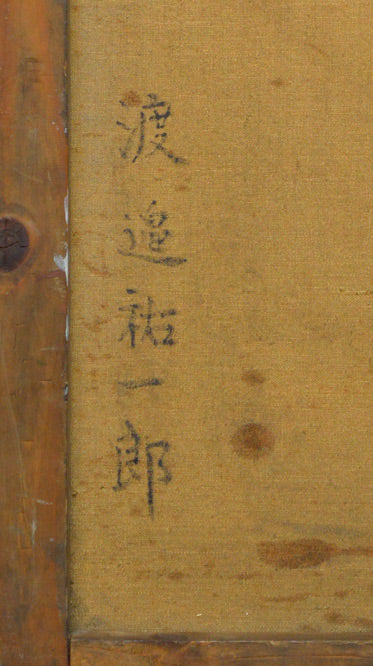 渡邉祐一郎